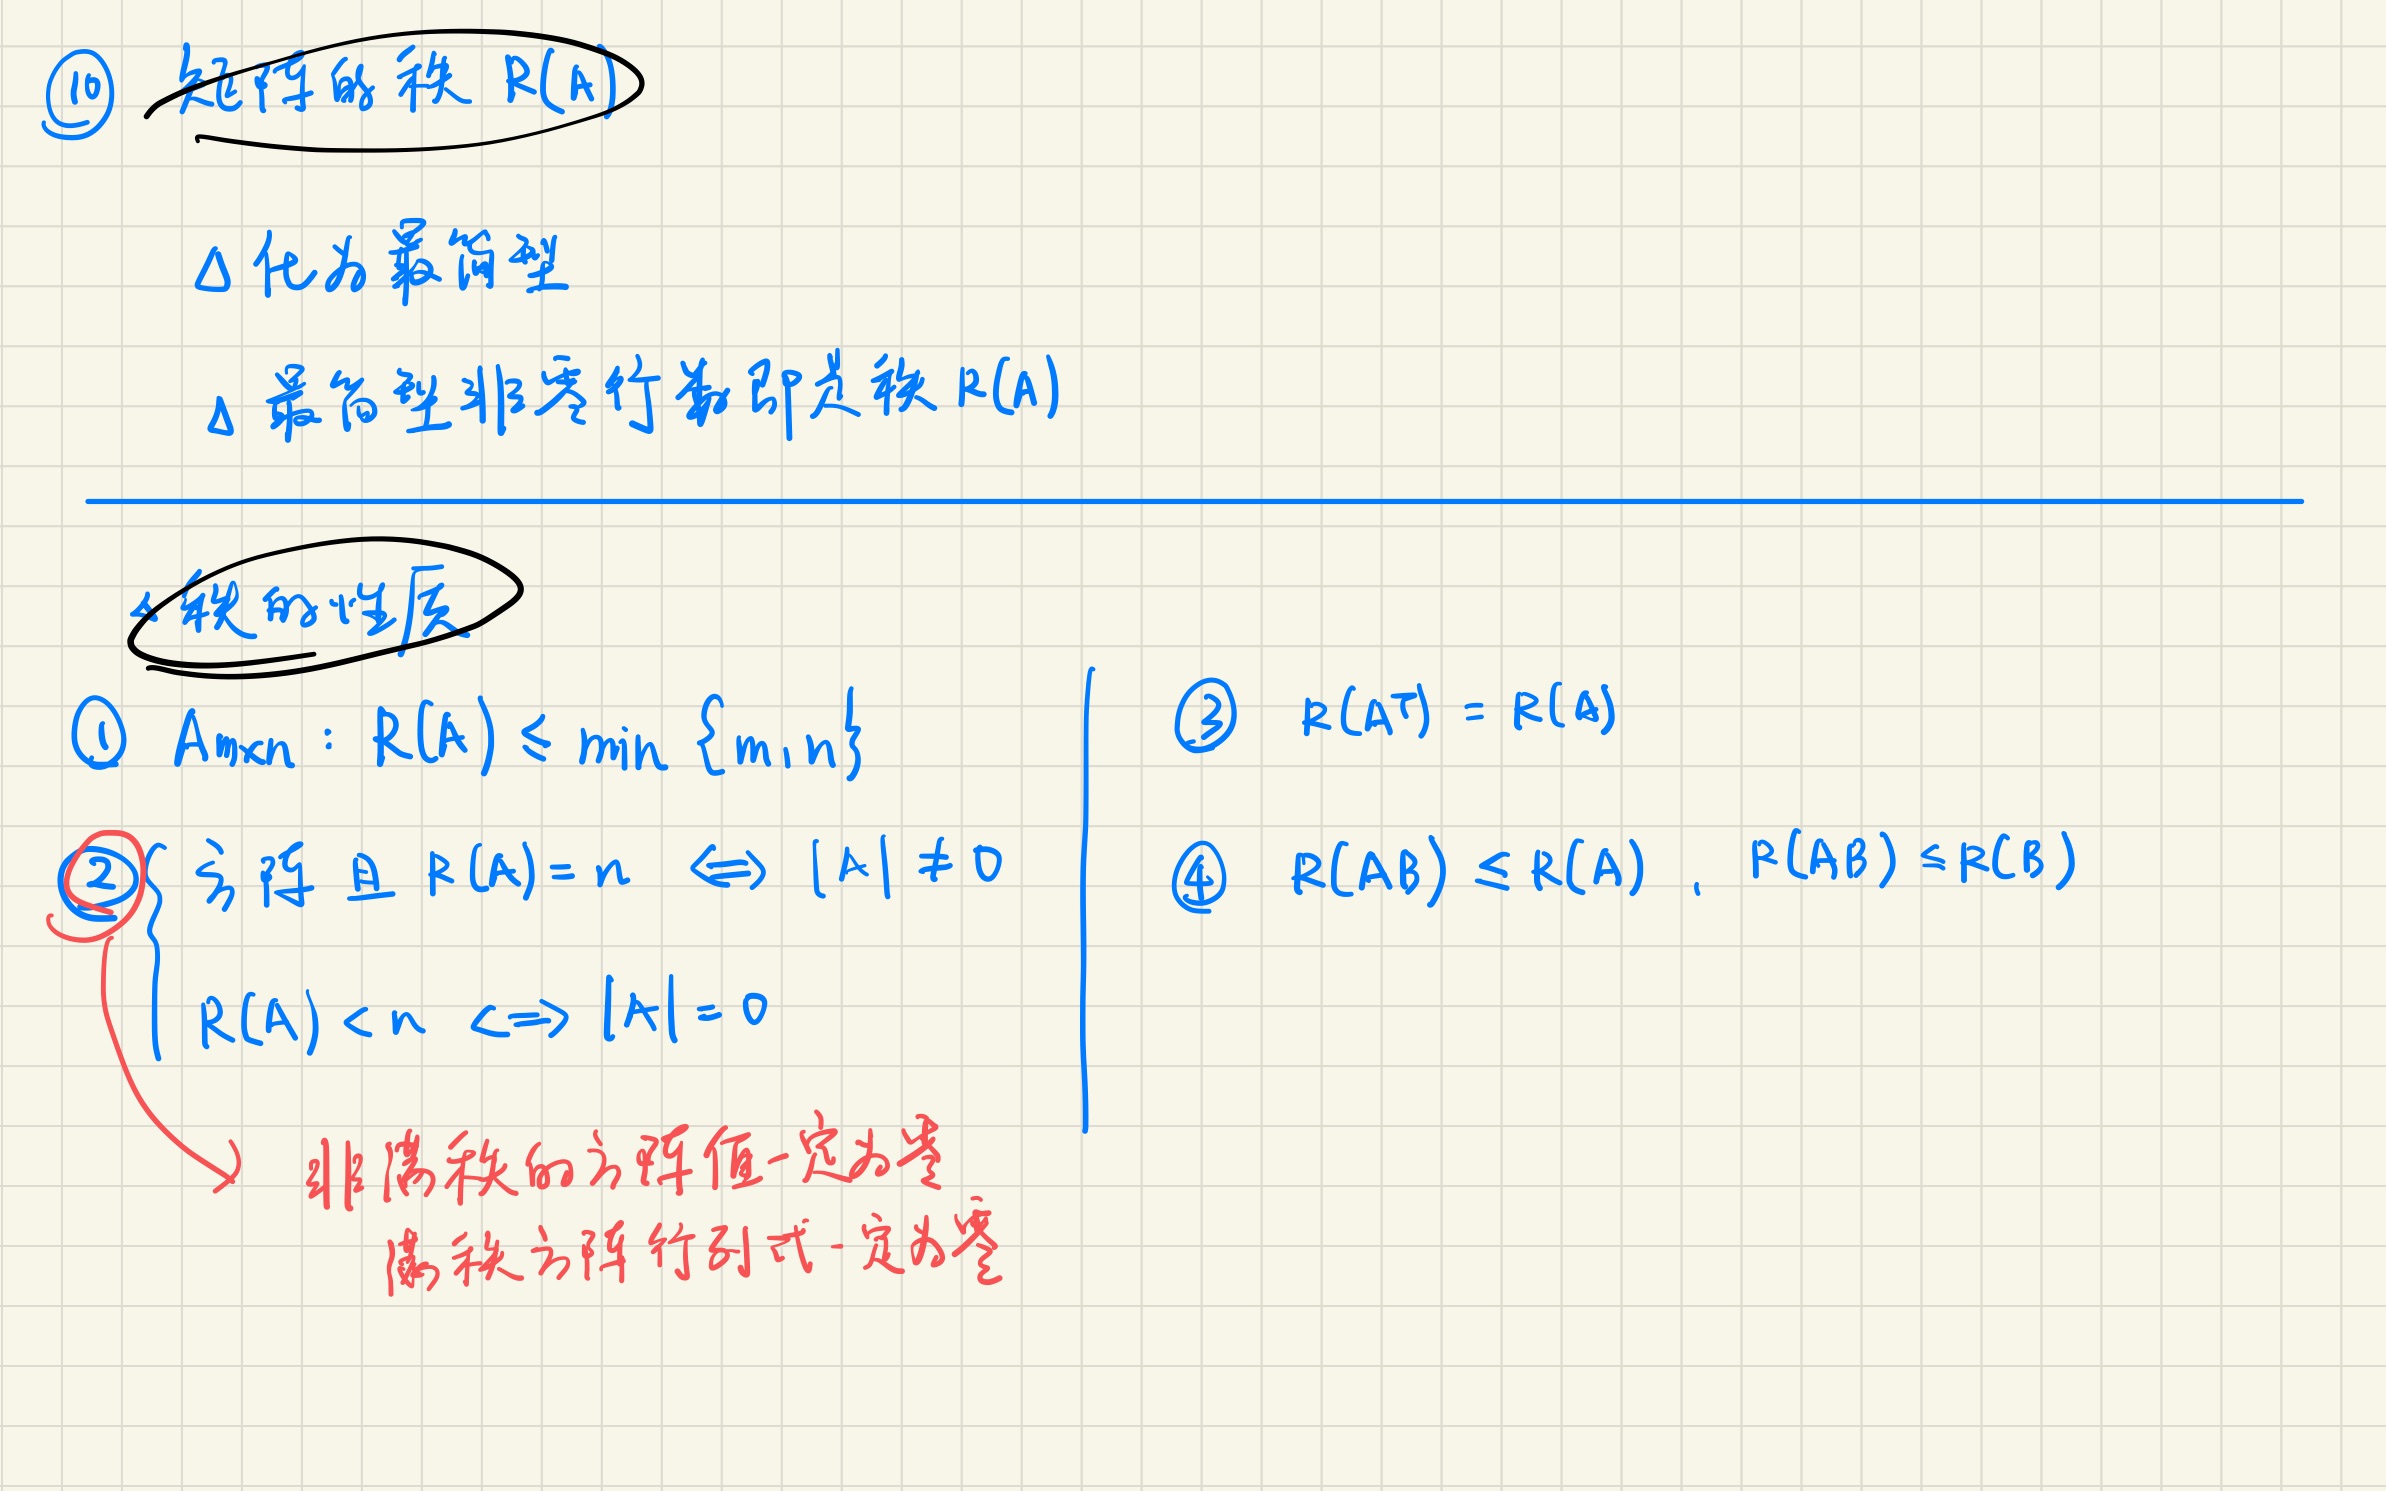 ⑩ 矩阵的秩 R(A)
△ 化为最简型
△ 最简型非零行数即为秩 R(A)
△ 秩的性质
① Am×n : R(A) ≤ min {m, n}
② 方阵且 R(A) = n ⟺ |A| ≠ 0
R(A) < n ⟺ |A| = 0
非满秩的方阵值一定为零
满秩方阵行列式一定为零
③ R(Aᵀ) = R(A)
④ R(AB) ≤ R(A) , R(AB) ≤ R(B)